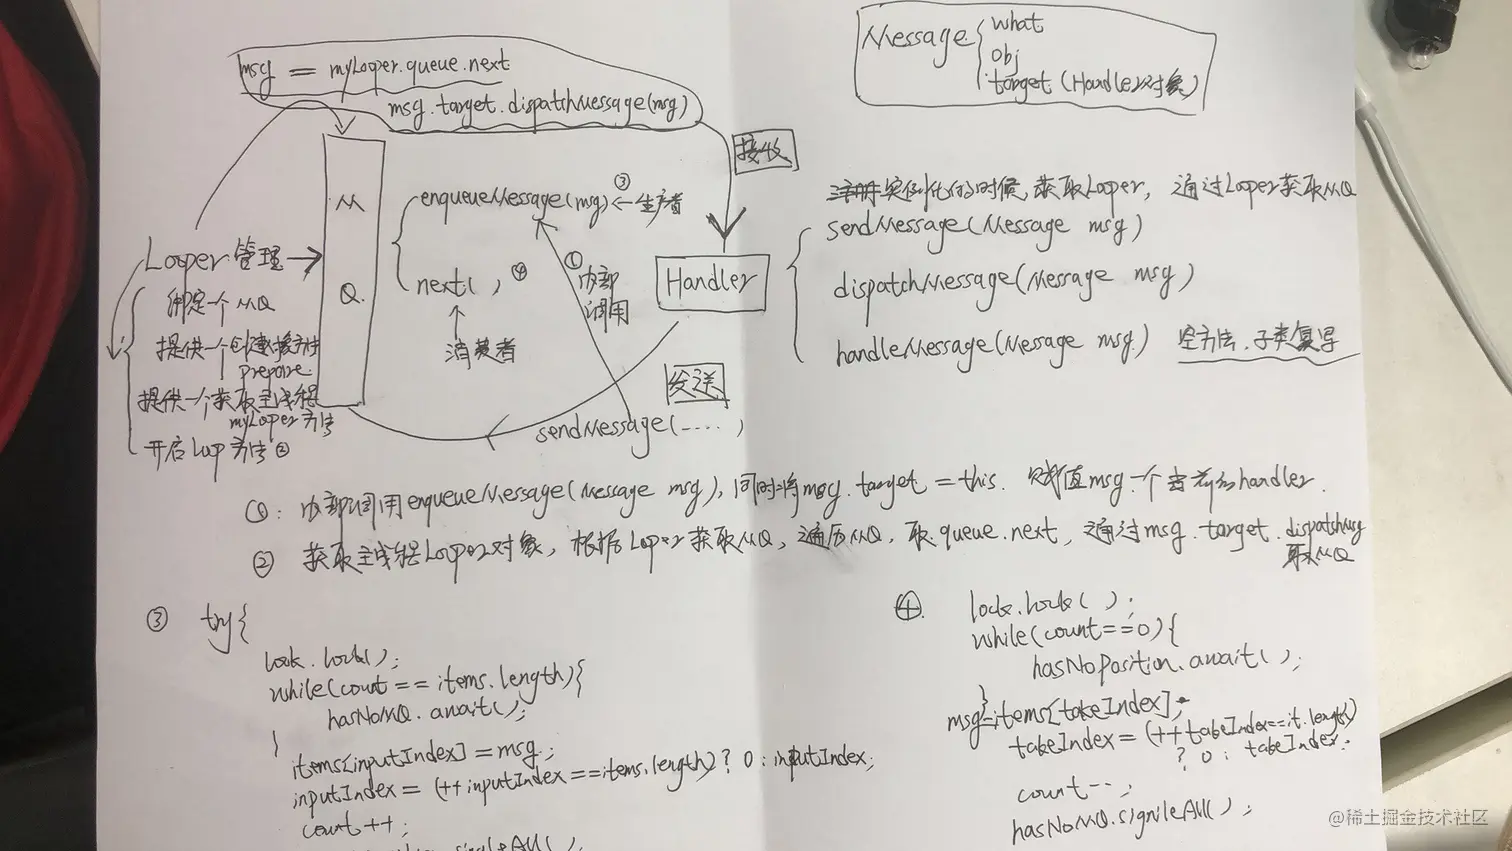 msg = myLoper.queue.next
msg.target.dispatchMessage(msg)
Message { what
obj
target (Handler对象)
接收
M
Q.
enqueueMessage(msg) ③ ← 生产者
next( ) ④
消费者
① 内部
调用
Handler
发送
sendMessage(....)
Looper 管理 →
绑定一个MQ
提供一个创建 方法
prepare
提供一个获取主线程
myLoper方法
开启Loop方法②
实例化的时候,获取Looper, 通过Looper获取MQ
sendMessage(Message msg)
dispatchMessage(Message msg)
handleMessage(Message msg) 空方法.子类复写
①: 内部调用enqueueMessage(Message msg),同时将msg.target = this. 赋值msg一个当前的handler.
② 获取主线程Looper对象, 根据Loper获取MQ, 遍历MQ, 取queue.next, 通过msg.target.dispatchMsg
取MQ
③ try{
lock.lock();
while(count == items.length){
hasNoMQ.await();
}
items[inputIndex] = msg;
inputIndex = (++inputIndex==items.length)? 0 : inputIndex;
count++;
④. lock.lock( );
while(count==0){
hasNoPosition.await( );
}
msg=items[takeIndex];
takeIndex = (++takeIndex==it.length)
? 0 : takeIndex.
count--;
hasNoMQ.signleAll( );
@稀土掘金技术社区